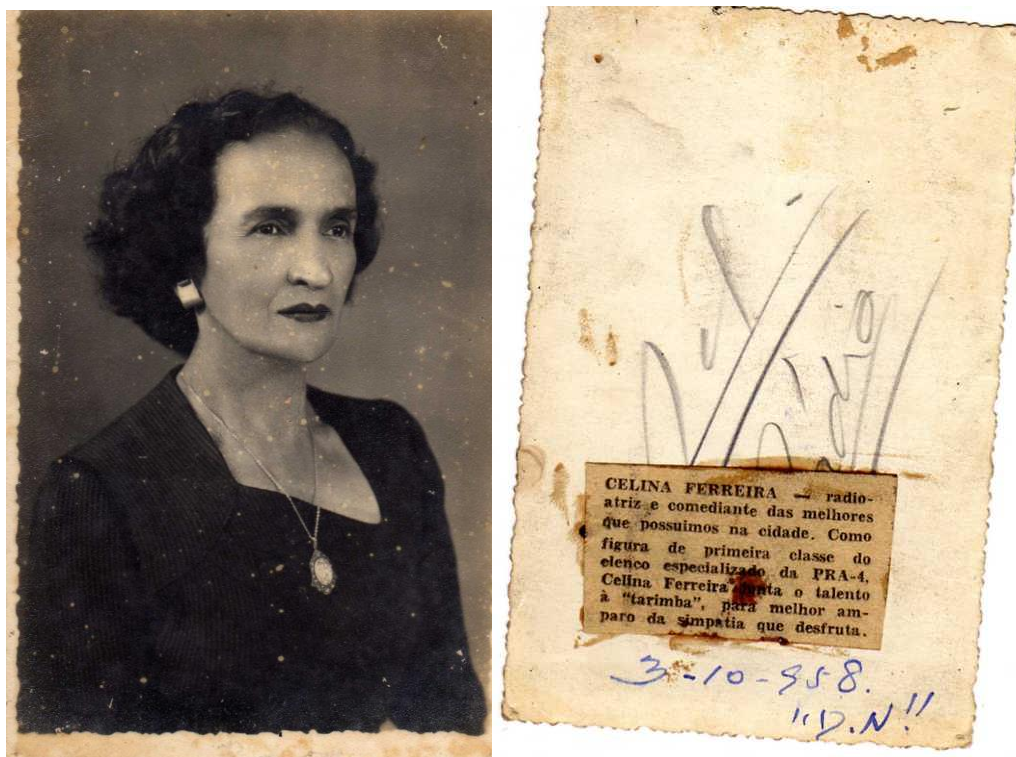 CELINA FERREIRA — radio-
atriz e comediante das melhores
que possuimos na cidade. Como
figura de primeira classe do
elenco especializado da PRA-4,
Celina Ferreira junta o talento
à "tarimba", para melhor am-
paro da simpatia que desfruta.
3-10-958.
"D.N!!